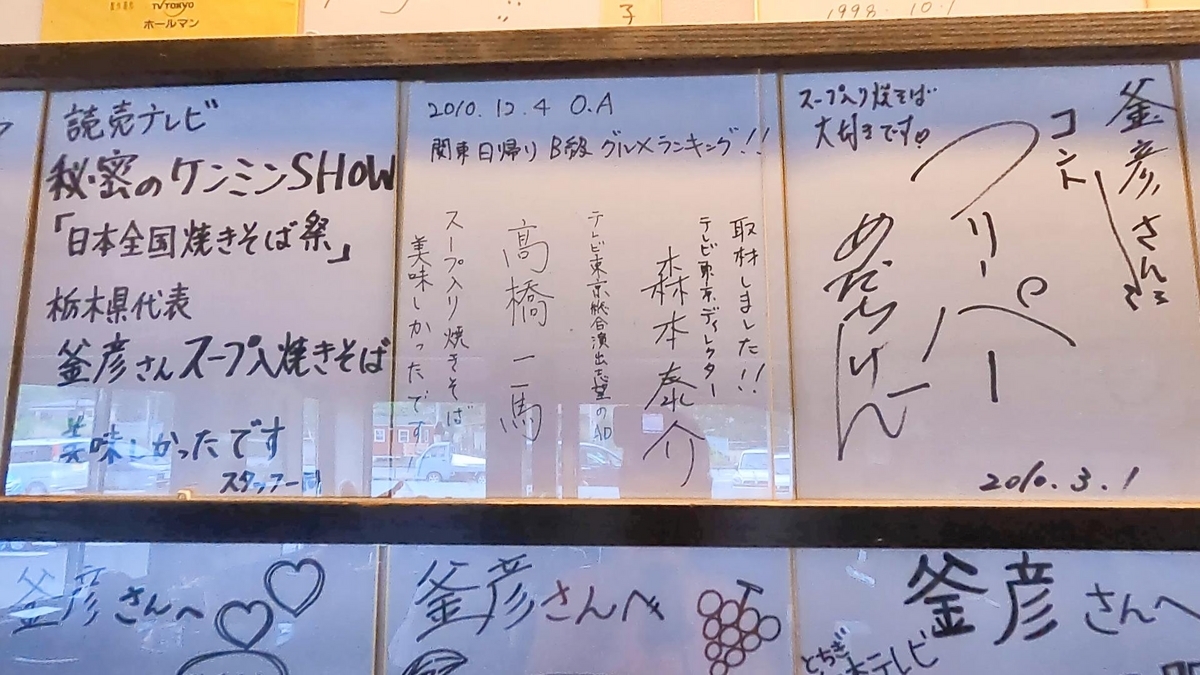 TV TOKYO
ホールマン
子
1998. 10.1
読売テレビ
秘密のケンミンSHOW
「日本全国焼きそば祭」
栃木県代表
釜彦さんスープ入焼きそば
美味しかったです
スタッフ一同
2010. 12. 4 O.A
関東日帰りB級グルメランキング!!
取材しました!!
テレビ東京ディレクター
森本泰介
テレビ東京総合演出志望のAD
高橋一馬
スープ入り焼きそば
美味しかったです!
釜彦さんへ
コント
スープ入り焼そば
大好きです
2010. 3. 1
釜彦さんへ
釜彦さんへ
釜彦さんへ
とちぎ
テレビ